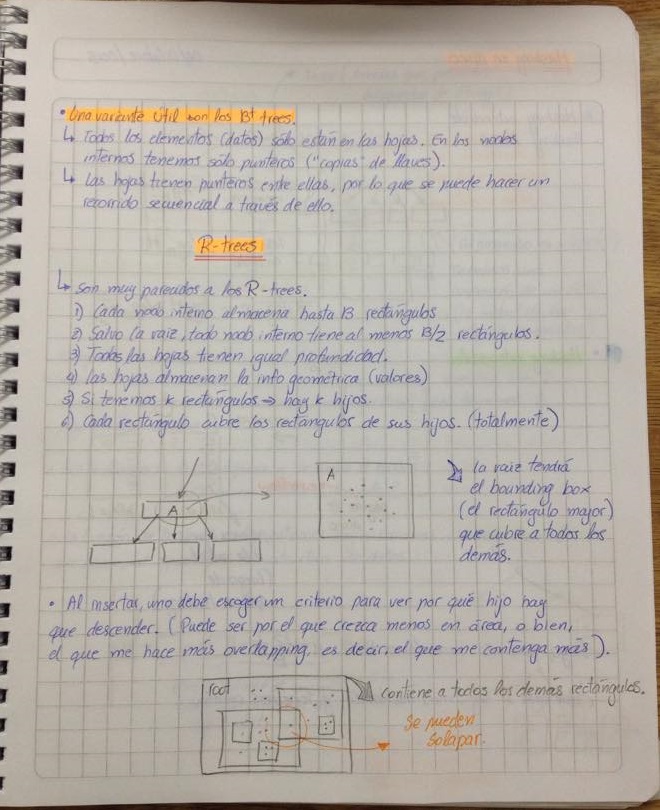 • Una variante útil son los B+ trees.
↳ Todos los elementos (datos) sólo están en las hojas. En los nodos
internos tenemos sólo punteros ("copias" de llaves).
↳ Las hojas tienen punteros entre ellas, por lo que se puede hacer un
recorrido secuencial a través de ello.
R-trees
↳ Son muy parecidos a los R-trees.
1) Cada nodo interno almacena hasta B rectángulos
2) Salvo la raíz, todo nodo interno tiene al menos B/2 rectángulos.
3) Todas las hojas tienen igual profundidad.
4) Las hojas almacenan la info geométrica (valores)
5) Si tenemos k rectángulos → hay k hijos.
6) Cada rectángulo cubre los rectángulos de sus hijos. (totalmente)
A
A
la raíz tendrá
el bounding box
(el rectángulo mayor)
que cubre a todos los
demás.
• Al insertar, uno debe escoger un criterio para ver por qué hijo hay
que descender. (Puede ser por el que crezca menos en área, o bien,
el que me hace más overlapping, es decir, el que me contenga más).
root
contiene a todos los demás rectángulos.
Se pueden
solapar.